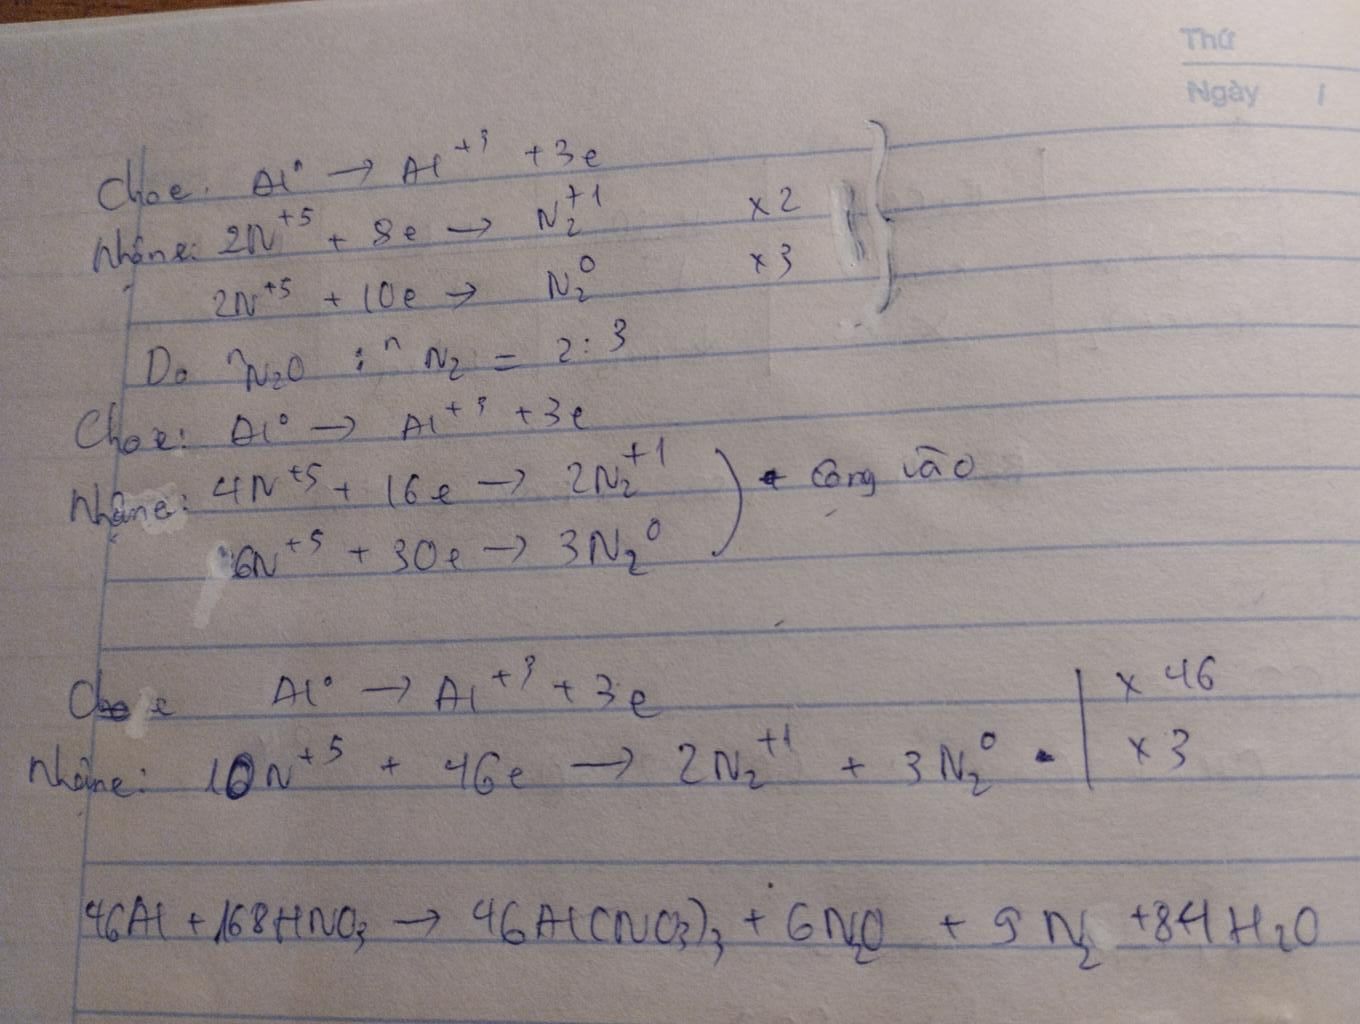 Thứ
Ngày /
Cho e: Al⁰ → Al⁺³ + 3e
Nhận e: 2N⁺⁵ + 8e → N₂⁺¹ x 2
2N⁺⁵ + 10e → N₂⁰ x 3
Do nN₂O : nN₂ = 2:3
Cho e: Al⁰ → Al⁺³ + 3e
Nhận e: 4N⁺⁵ + 16e → 2N₂⁺¹
6N⁺⁵ + 30e → 3N₂⁰ cộng vào
Cho e Al⁰ → Al⁺³ + 3e x 46
Nhận e: 10N⁺⁵ + 46e → 2N₂⁺¹ + 3N₂⁰ x 3
46Al + 168HNO₃ → 46Al(NO₃)₃ + 6N₂O + 9N₂ + 84H₂O